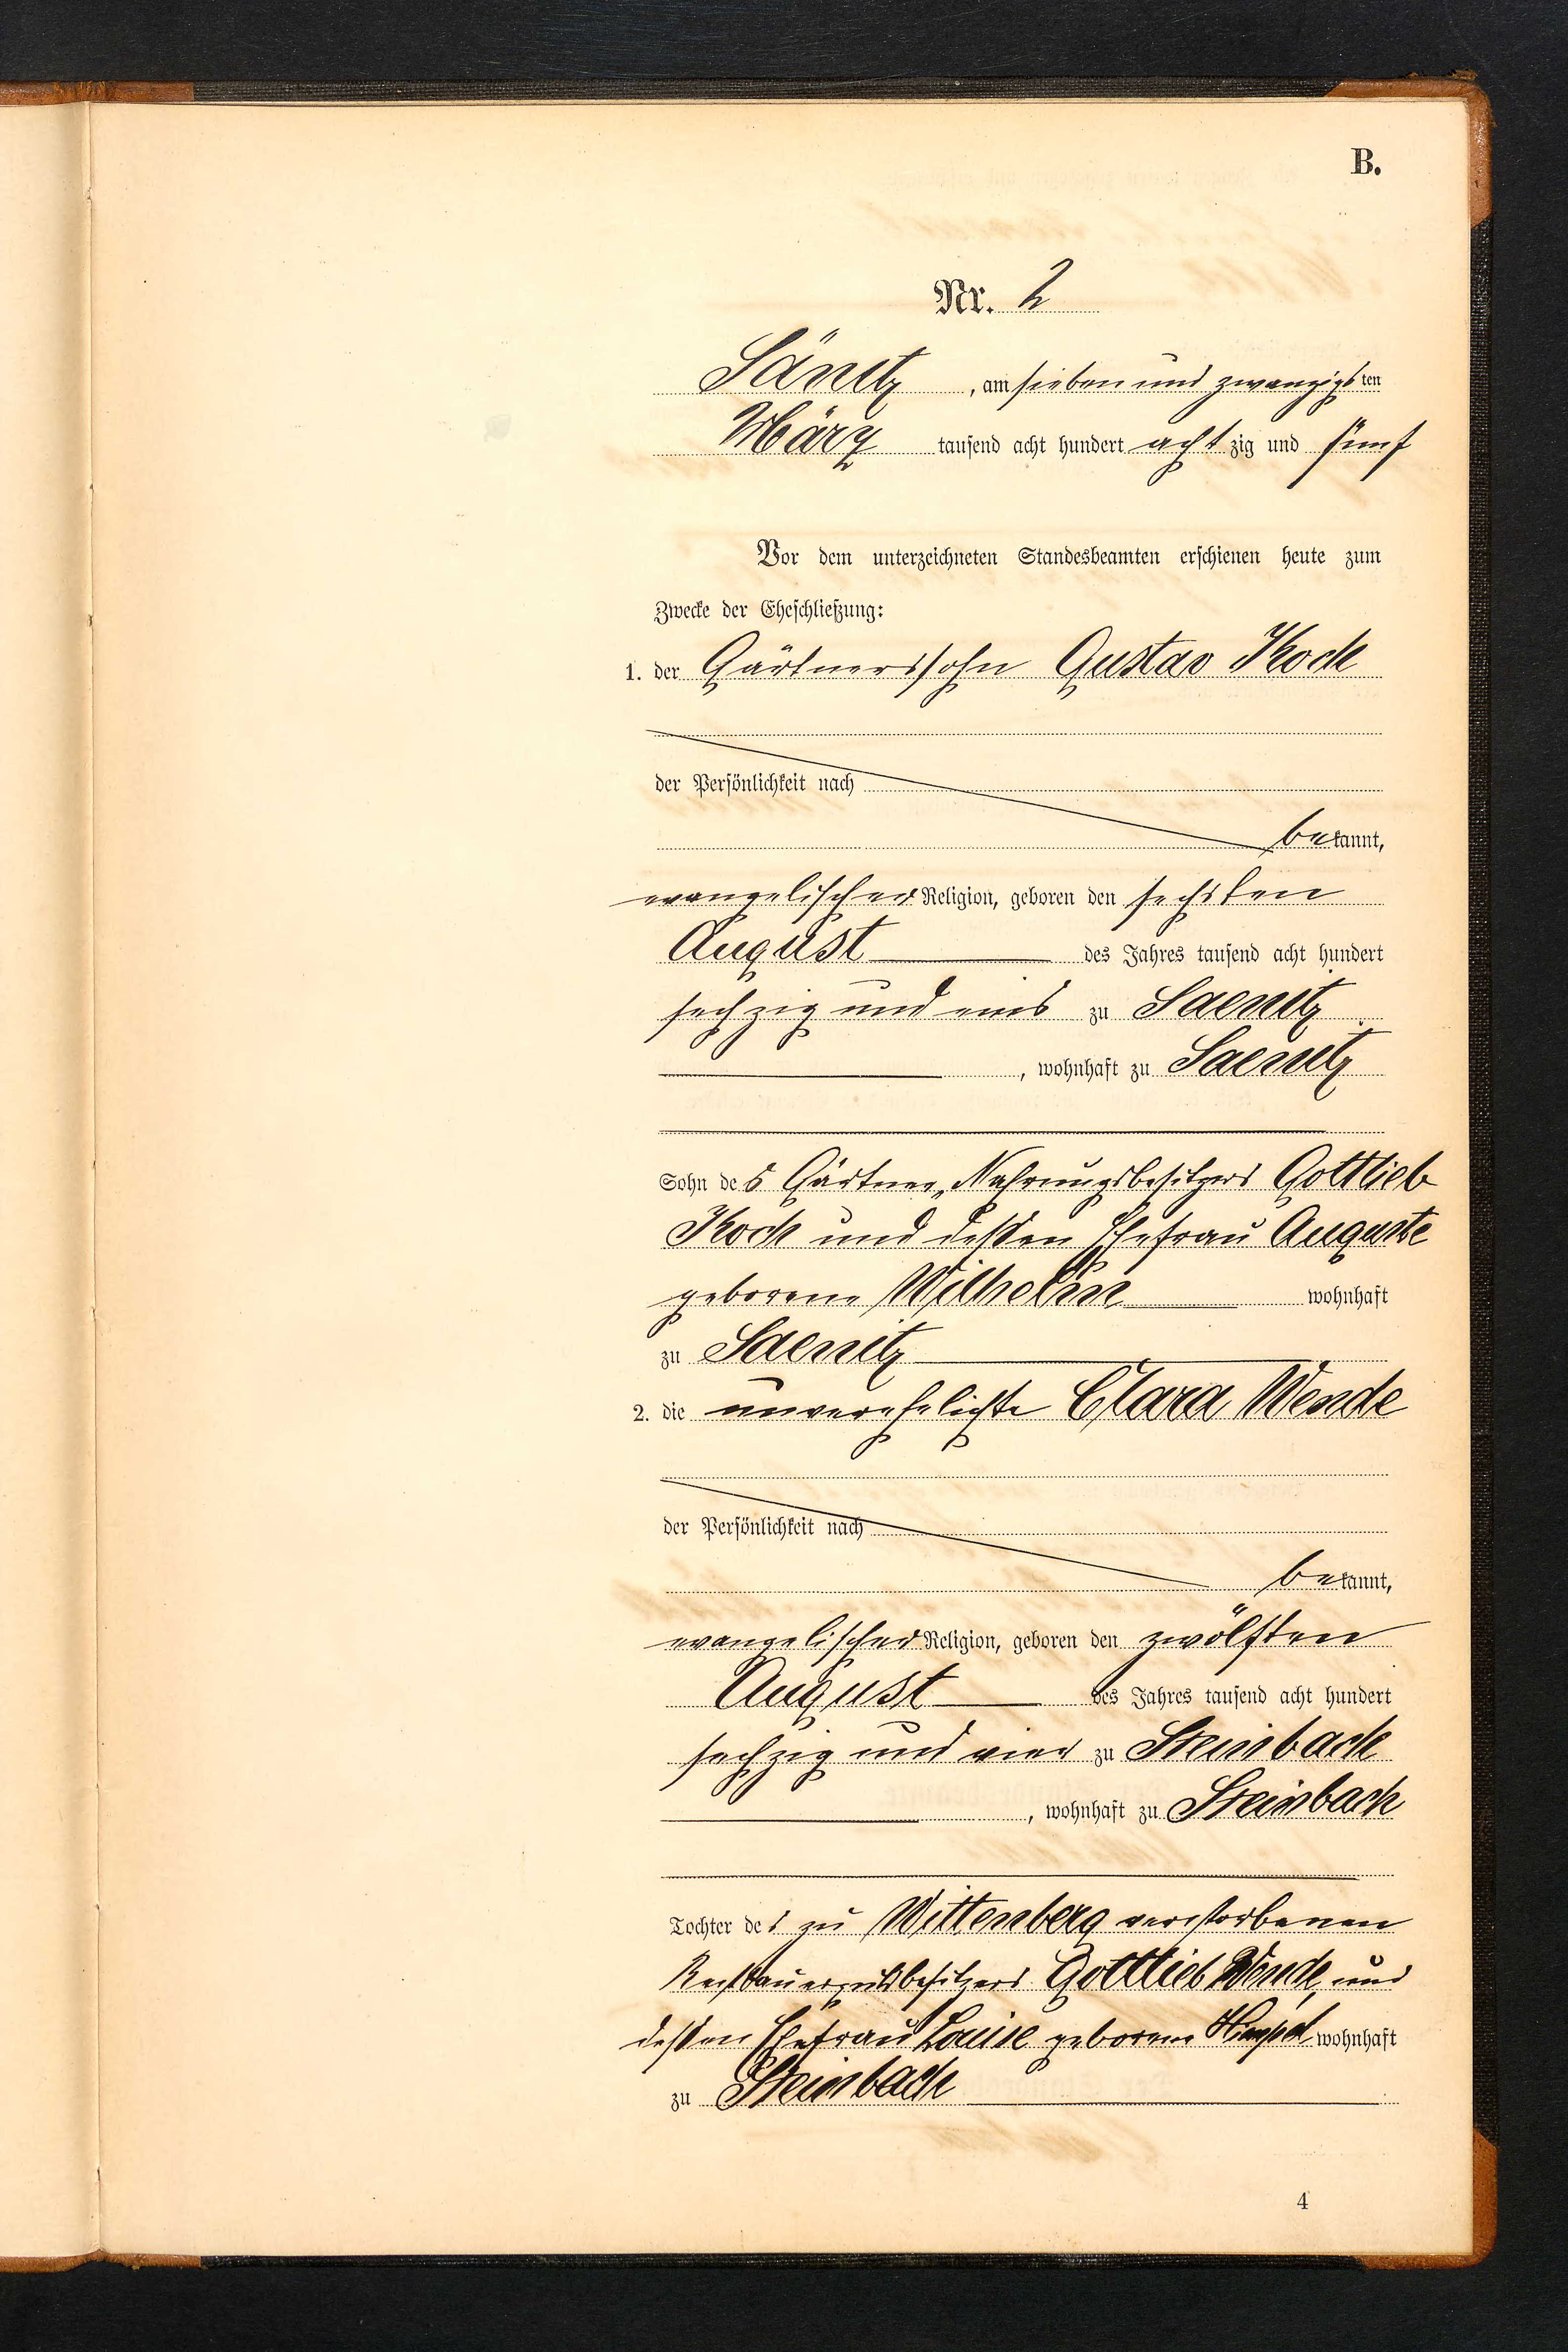 B.
Nr. 2
Sänitz, am sieben und zwanzigsten
März tausend acht hundert achtzig und fünf
Vor dem unterzeichneten Standesbeamten erschienen heute zum
Zwecke der Eheschließung:
1. der Gärtnerssohn Gustav Kock
der Persönlichkeit nach
bekannt,
evangelischer Religion, geboren den sechsten
August des Jahres tausend acht hundert
sechzig und eins zu Saenitz
, wohnhaft zu Saenitz
Sohn des Gärtner, Nahrungsbesitzers Gottlieb
Kock und deßen Ehefrau Auguste
geborene Wilhelm wohnhaft
zu Saenitz
2. die unverehelichte Clara Wende
der Persönlichkeit nach
bekannt,
evangelischer Religion, geboren den zwölften
August des Jahres tausend acht hundert
sechzig und vier zu Steinbach
, wohnhaft zu Steinbach
Tochter des zu Wittenberg verstorbenen
Restbauergutsbesitzers Gottlieb Wende, und
deßen Ehefrau Louise geborene wohnhaft
zu Steinbach
4